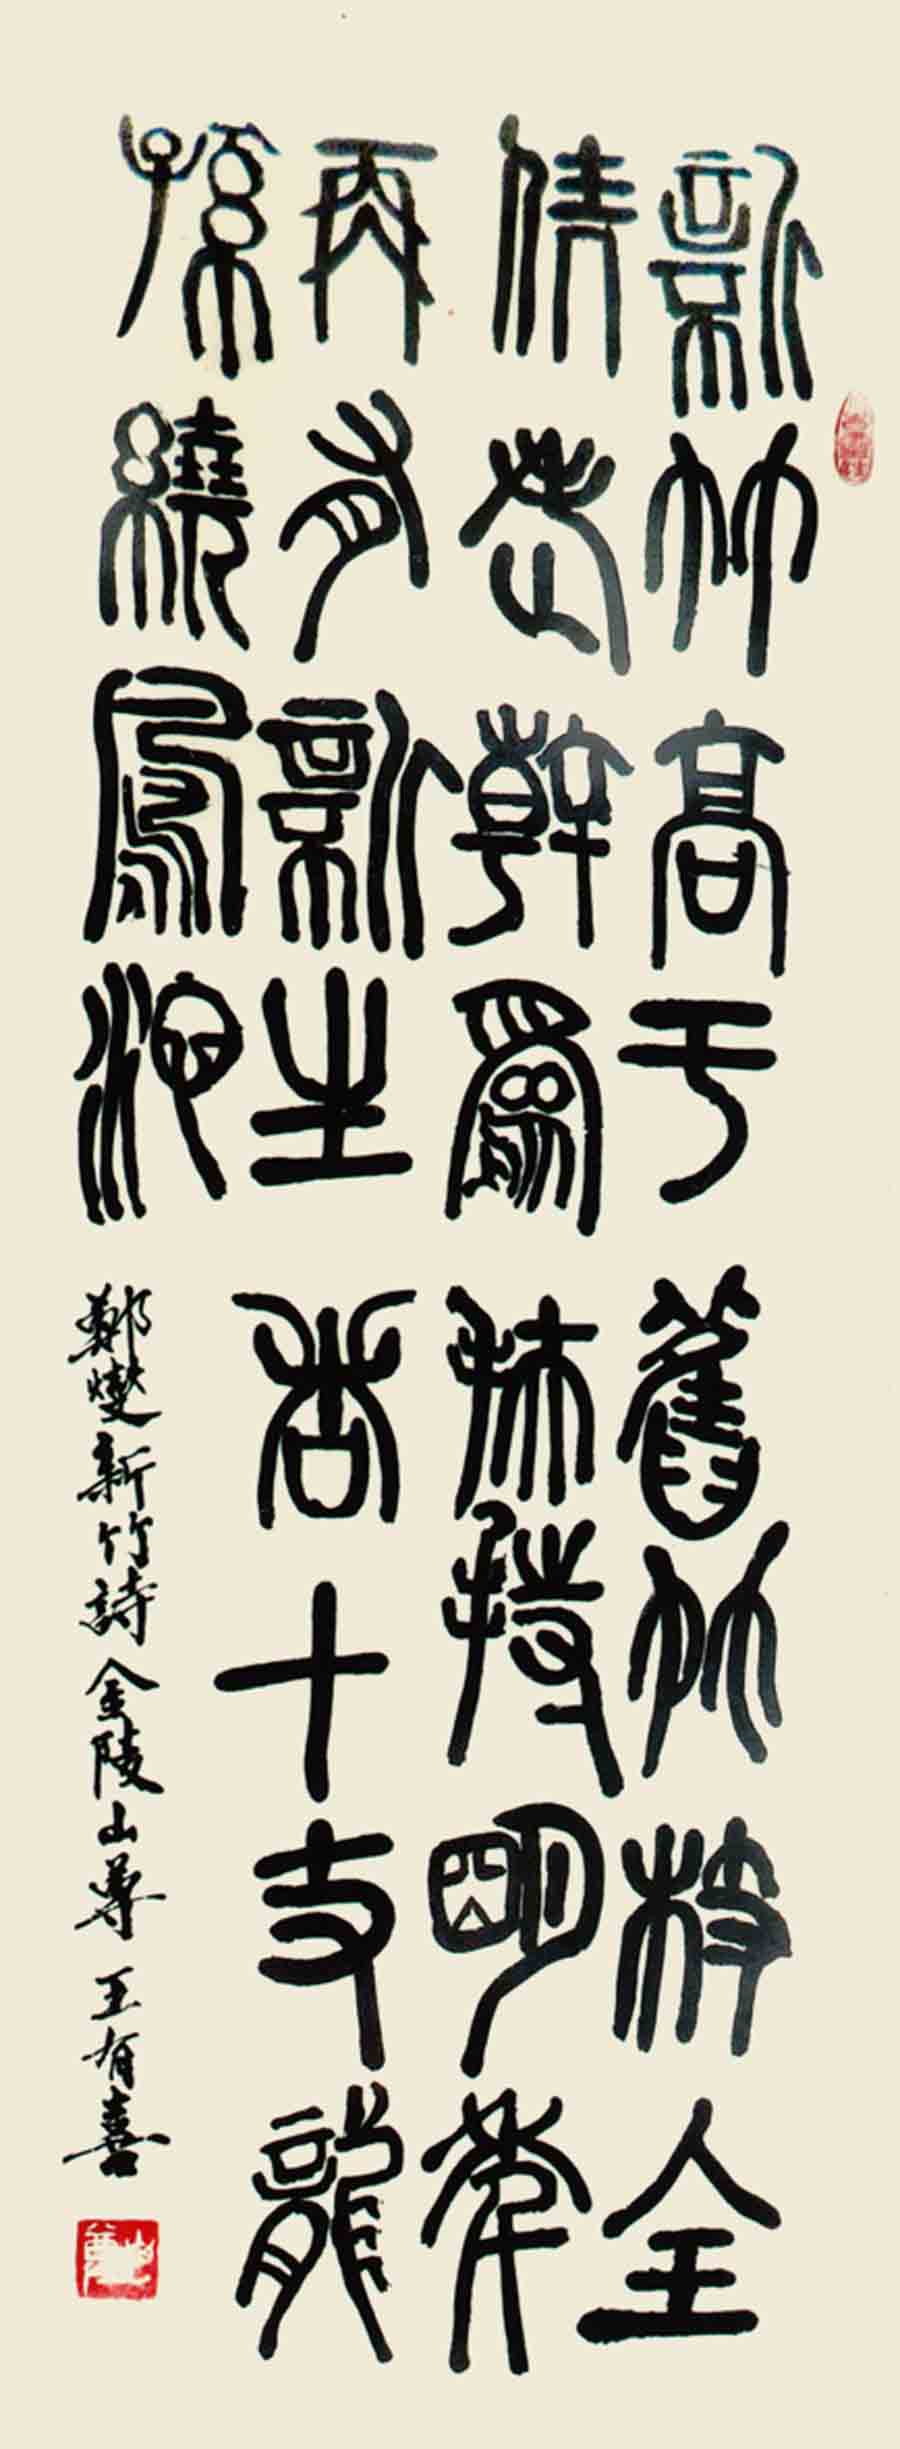 新竹高于舊竹枝全
老幹爲扶持明年
再有新生者十丈龍
孫繞鳳池
鄭燮新竹詩 金陵山尊 王有喜